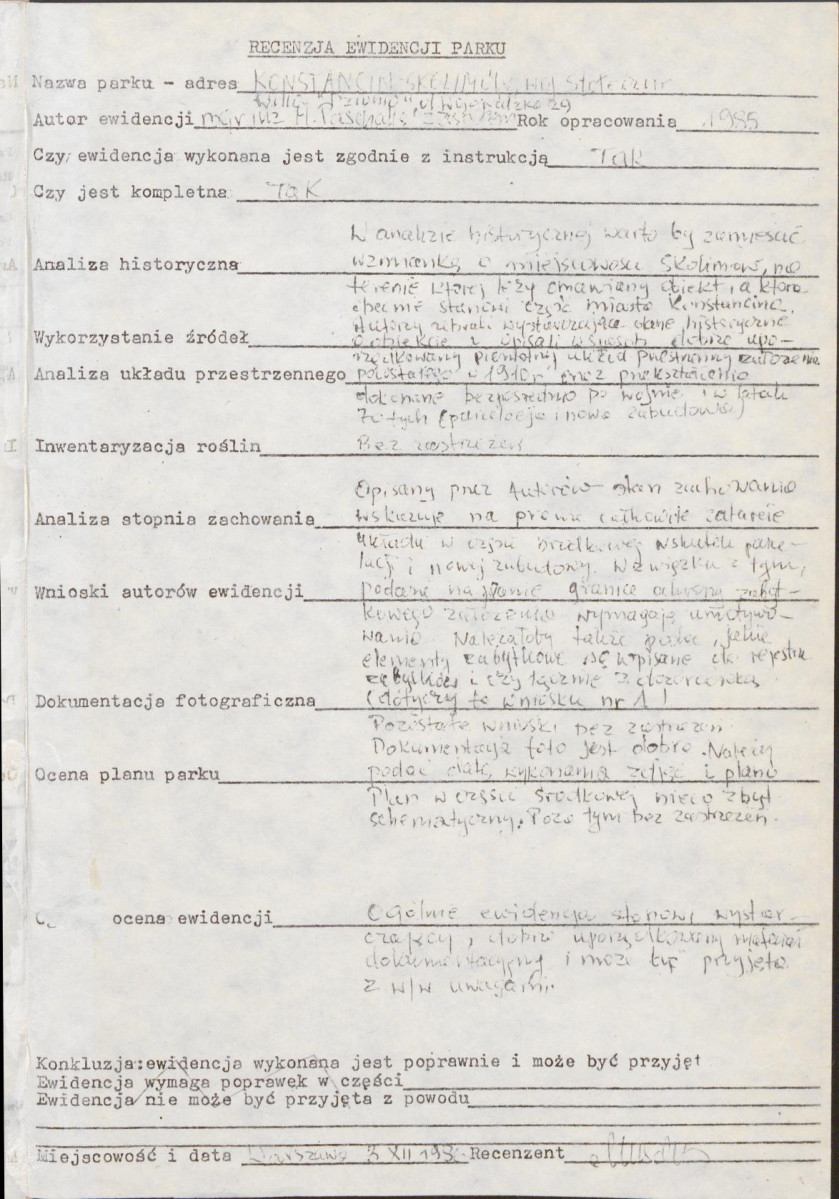 RECENZJA EWIDENCJI PARKU
Nazwa parku - adres KONSTANCIN-SKOLIMÓW, woj. stołeczne
willa
Autor ewidencji mariusz M. Rok opracowania 1985
Czy, ewidencja wykonana jest zgodnie z instrukcją TAK
Czy jest kompletna TAK
W analizie historycznej warto by zamieścić
Analiza historyczna wzmiankę o miejscowości Skolimów, na
terenie której leży omawiany obiekt, a która
obecnie stanowi część miasta Konstancina.
Autorzy zebrali wystarczające dane historyczne
Wykorzystanie źródeł o obiekcie i opisali w sposób dobrze upo-
rządkowany pierwotny układ przestrzenny założenia
Analiza układu przestrzennego powstałego w 1910 r. oraz przekształcenia
dokonane bezpośrednio po wojnie i w latach
70-tych (parcelacja i nowa zabudowa)
Inwentaryzacja roślin Bez zastrzeżeń
Opisany przez Autorów stan zachowania
Analiza stopnia zachowania wskazuje na prawie całkowite zatarcie
układu w części środkowej wskutek parce-
lacji i nowej zabudowy. W związku z tym,
Wnioski autorów ewidencji podane na planie granice ochrony zabyt-
kowego założenia wymagają umotywo-
wania. Należałoby także podać, jakie
elementy zabytkowe są wpisane do rejestru
zabytków i czy łącznie z
Dokumentacja fotograficzna (dotyczy to wniosku nr 1)
Pozostałe wnioski bez zastrzeżeń.
Dokumentacja foto jest dobra. Należy
Ocena planu parku podać datę wykonania zdjęć i planu
Plan w części środkowej nieco zbyt
schematyczny. Poza tym bez zastrzeżeń.
ocena ewidencji Ogólnie ewidencja stanowi wystar-
czający, dobrze uporządkowany materiał
dokumentacyjny i może być przyjęta
z w/w uwagami.
Konkluzja:ewidencja wykonana jest poprawnie i może być przyjęt
Ewidencja wymaga poprawek w części
Ewidencja nie może być przyjęta z powodu
Miejscowość i data Warszawa 3 XII Recenzent